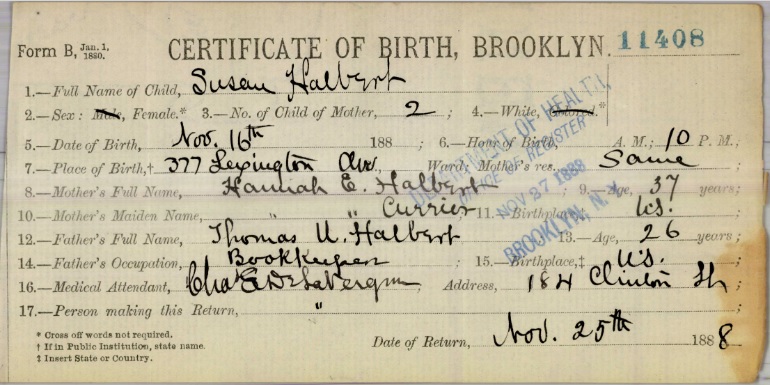 Form B, Jan. 1, 1880. CERTIFICATE OF BIRTH, BROOKLYN. 11408
1.—Full Name of Child, Susan Halbert
2.—Sex: Male, Female.* 3.—No. of Child of Mother, 2 ; 4.—White, Colored.*
5.—Date of Birth, Nov. 16th 188 ; 6.—Hour of Birth, A. M.; 10 P. M.;
7.—Place of Birth,† 377 Lexington Ave, Ward; Mother's res. Same ;
8.—Mother's Full Name, Hannah E. Halbert ; 9.—Age, 37 years;
10.—Mother's Maiden Name, " " Currier 11.—Birthplace, U.S. ;
12.—Father's Full Name, Thomas U. Halbert 13.—Age, 26 years;
14.—Father's Occupation, Bookkeeper ; 15.—Birthplace,‡ U.S. ;
16.—Medical Attendant, Chas E De LaVergne Address, 184 Clinton St ;
17.—Person making this Return, " ;
* Cross off words not required.
† If in Public Institution, state name.
‡ Insert State or Country.
Date of Return, Nov. 25th 1888
DEPARTMENT OF HEALTH,
OFFICE OF REGISTER
NOV 27 1888
BROOKLYN, N. Y.